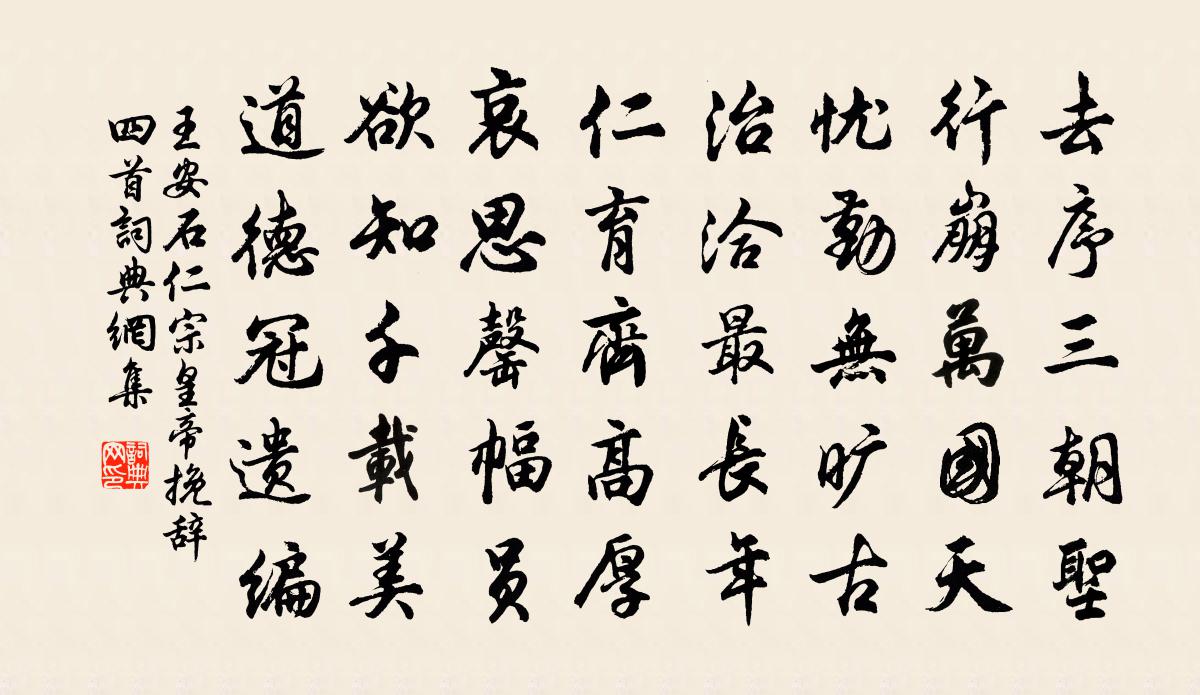 去序三朝聖
行崩萬國天
忧勤無旷古
治洽最長年
仁育齊高厚
哀思罄幅员
欲知千載美
道德冠遗编
王安石仁宗皇帝挽辞
四首詞典網集
詞典网印